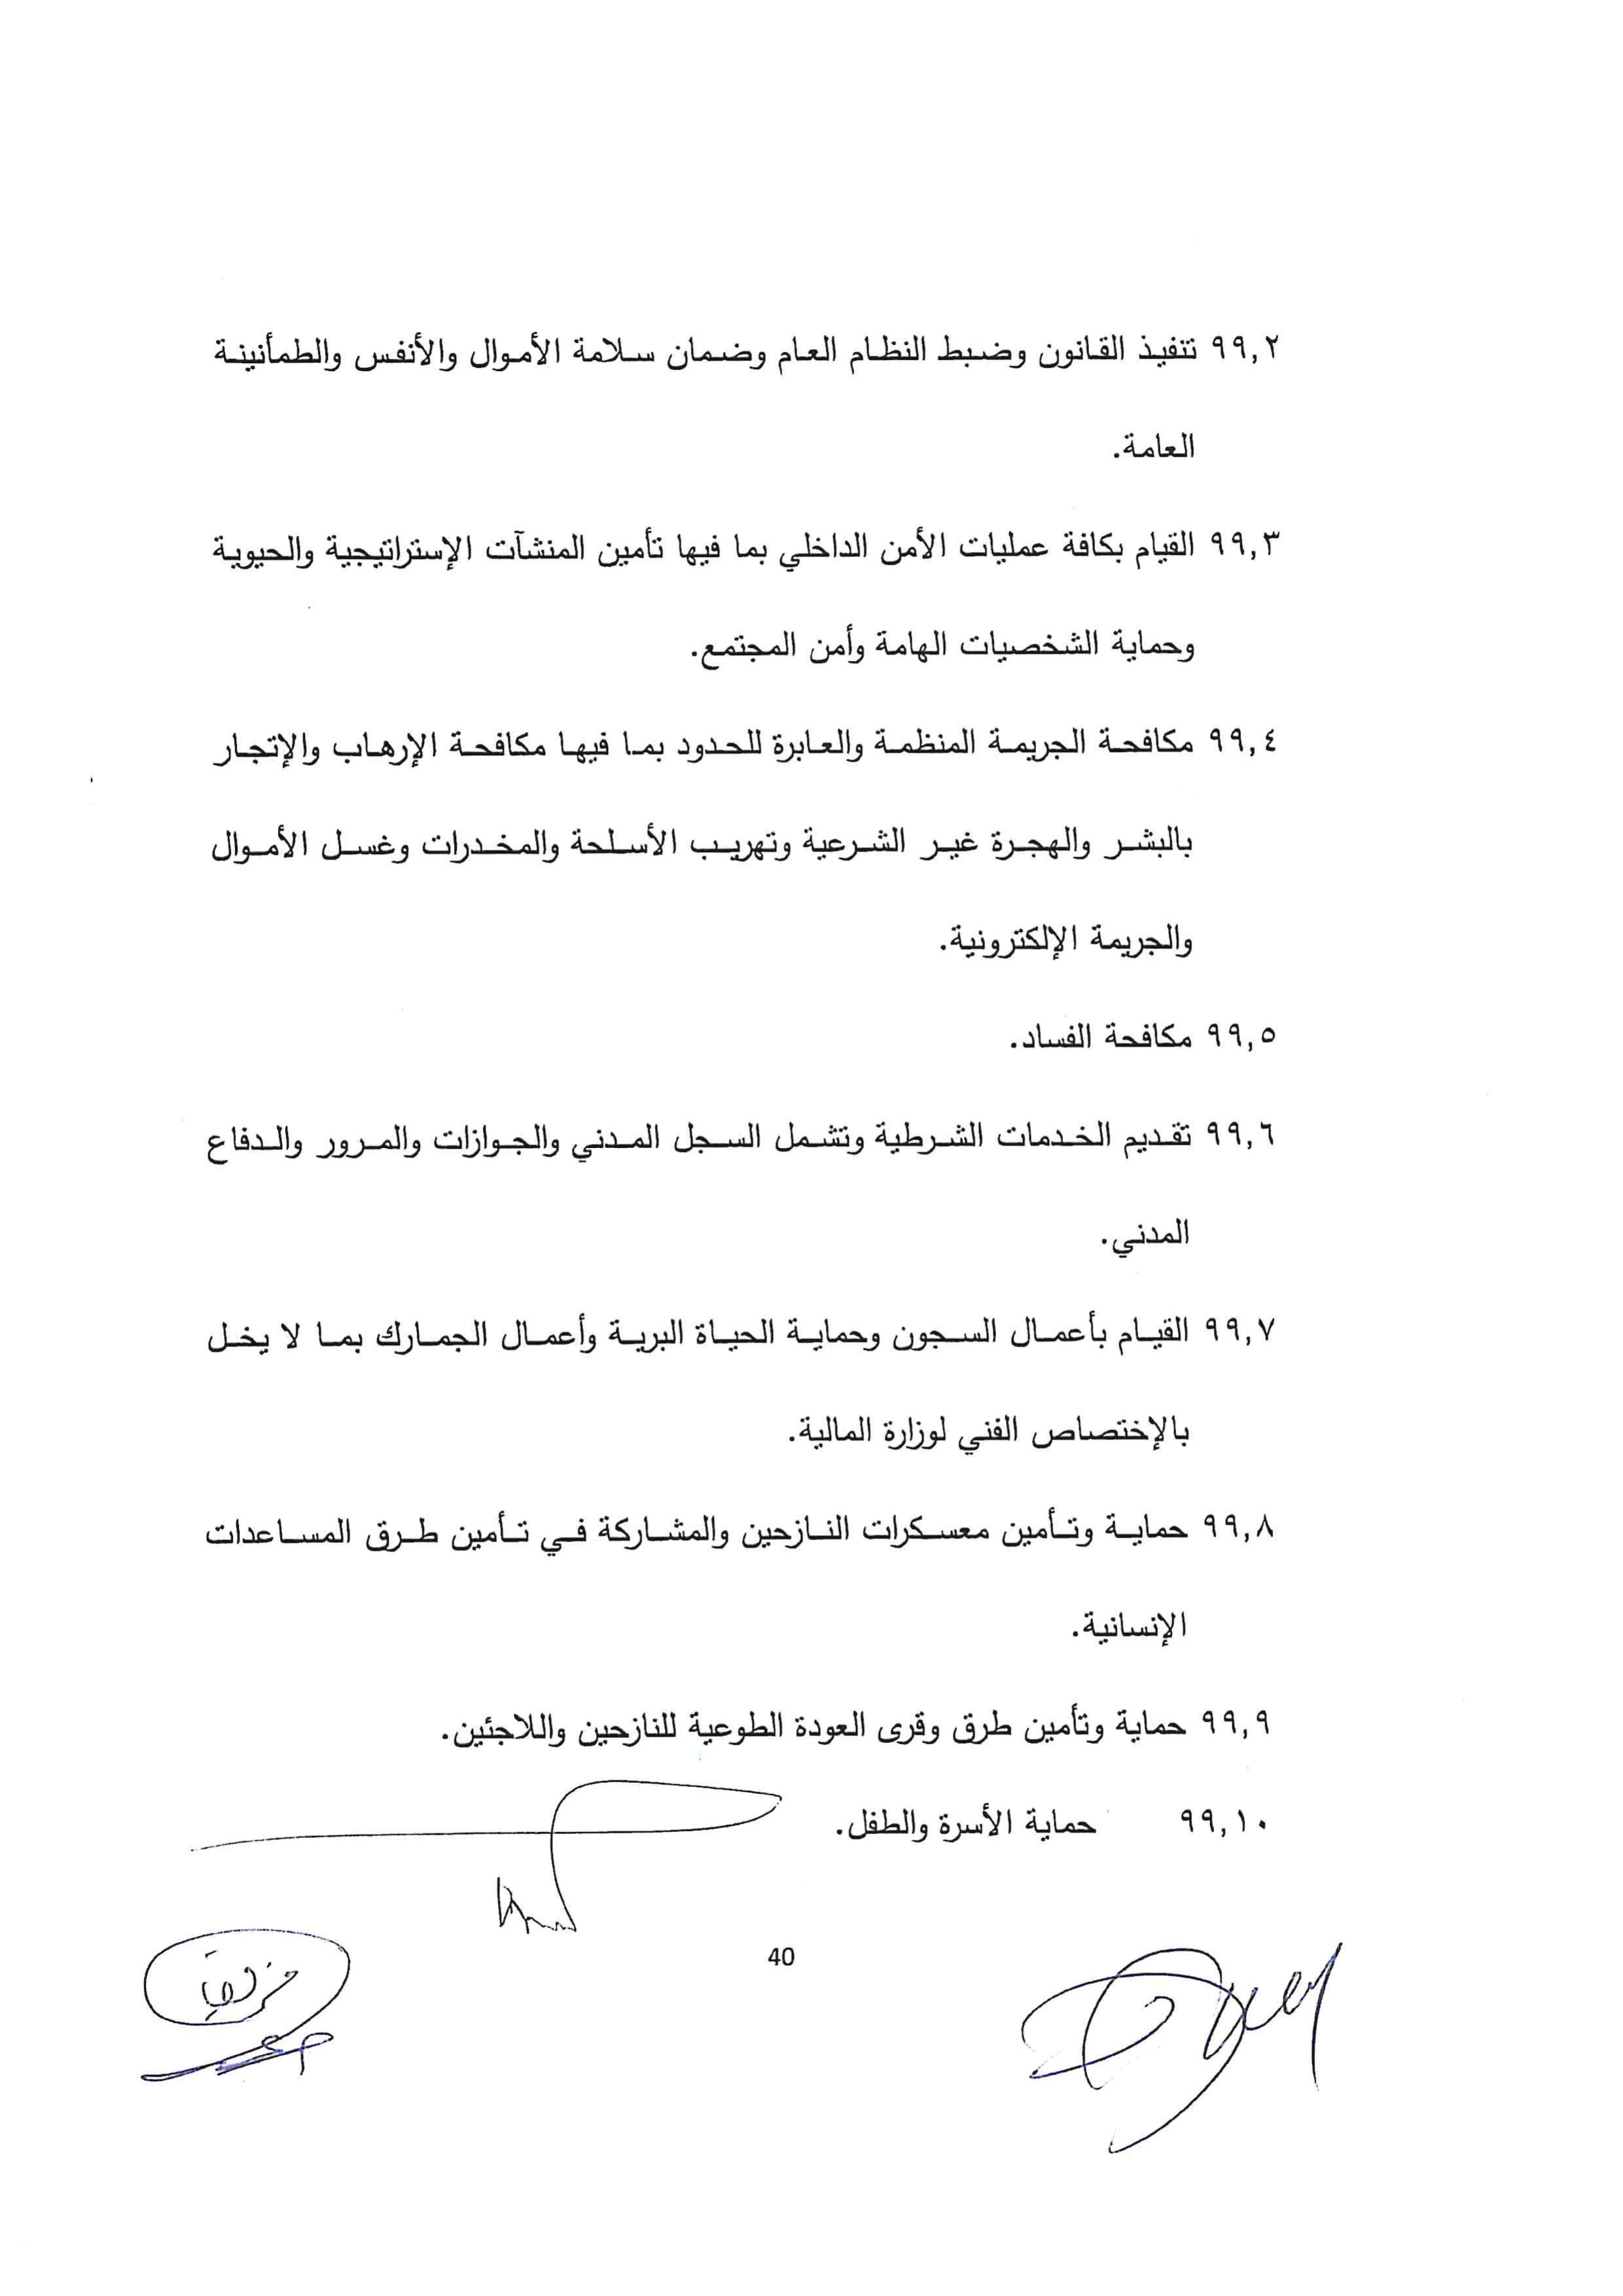 ٩٩,٢ تنفيذ القانون وضبط النظام العام وضمان سلامة الأموال والأنفس والطمأنينة
العامة.
٩٩,٣ القيام بكافة عمليات الأمن الداخلي بما فيها تأمين المنشآت الإستراتيجية والحيوية
وحماية الشخصيات الهامة وأمن المجتمع.
٩٩,٤ مكافحة الجريمة المنظمة والعابرة للحدود بما فيها مكافحة الإرهاب والإتجار
بالبشر والهجرة غير الشرعية وتهريب الأسلحة والمخدرات وغسل الأموال
والجريمة الإلكترونية.
٩٩,٥ مكافحة الفساد.
٩٩,٦ تقديم الخدمات الشرطية وتشمل السجل المدني والجوازات والمرور والدفاع
المدني.
٩٩,٧ القيام بأعمال السجون وحماية الحياة البرية وأعمال الجمارك بما لا يخل
بالإختصاص الفني لوزارة المالية.
٩٩,٨ حماية وتأمين معسكرات النازحين والمشاركة في تأمين طرق المساعدات
الإنسانية.
٩٩,٩ حماية وتأمين طرق وقرى العودة الطوعية للنازحين واللاجئين.
٩٩,١٠ حماية الأسرة والطفل.
40